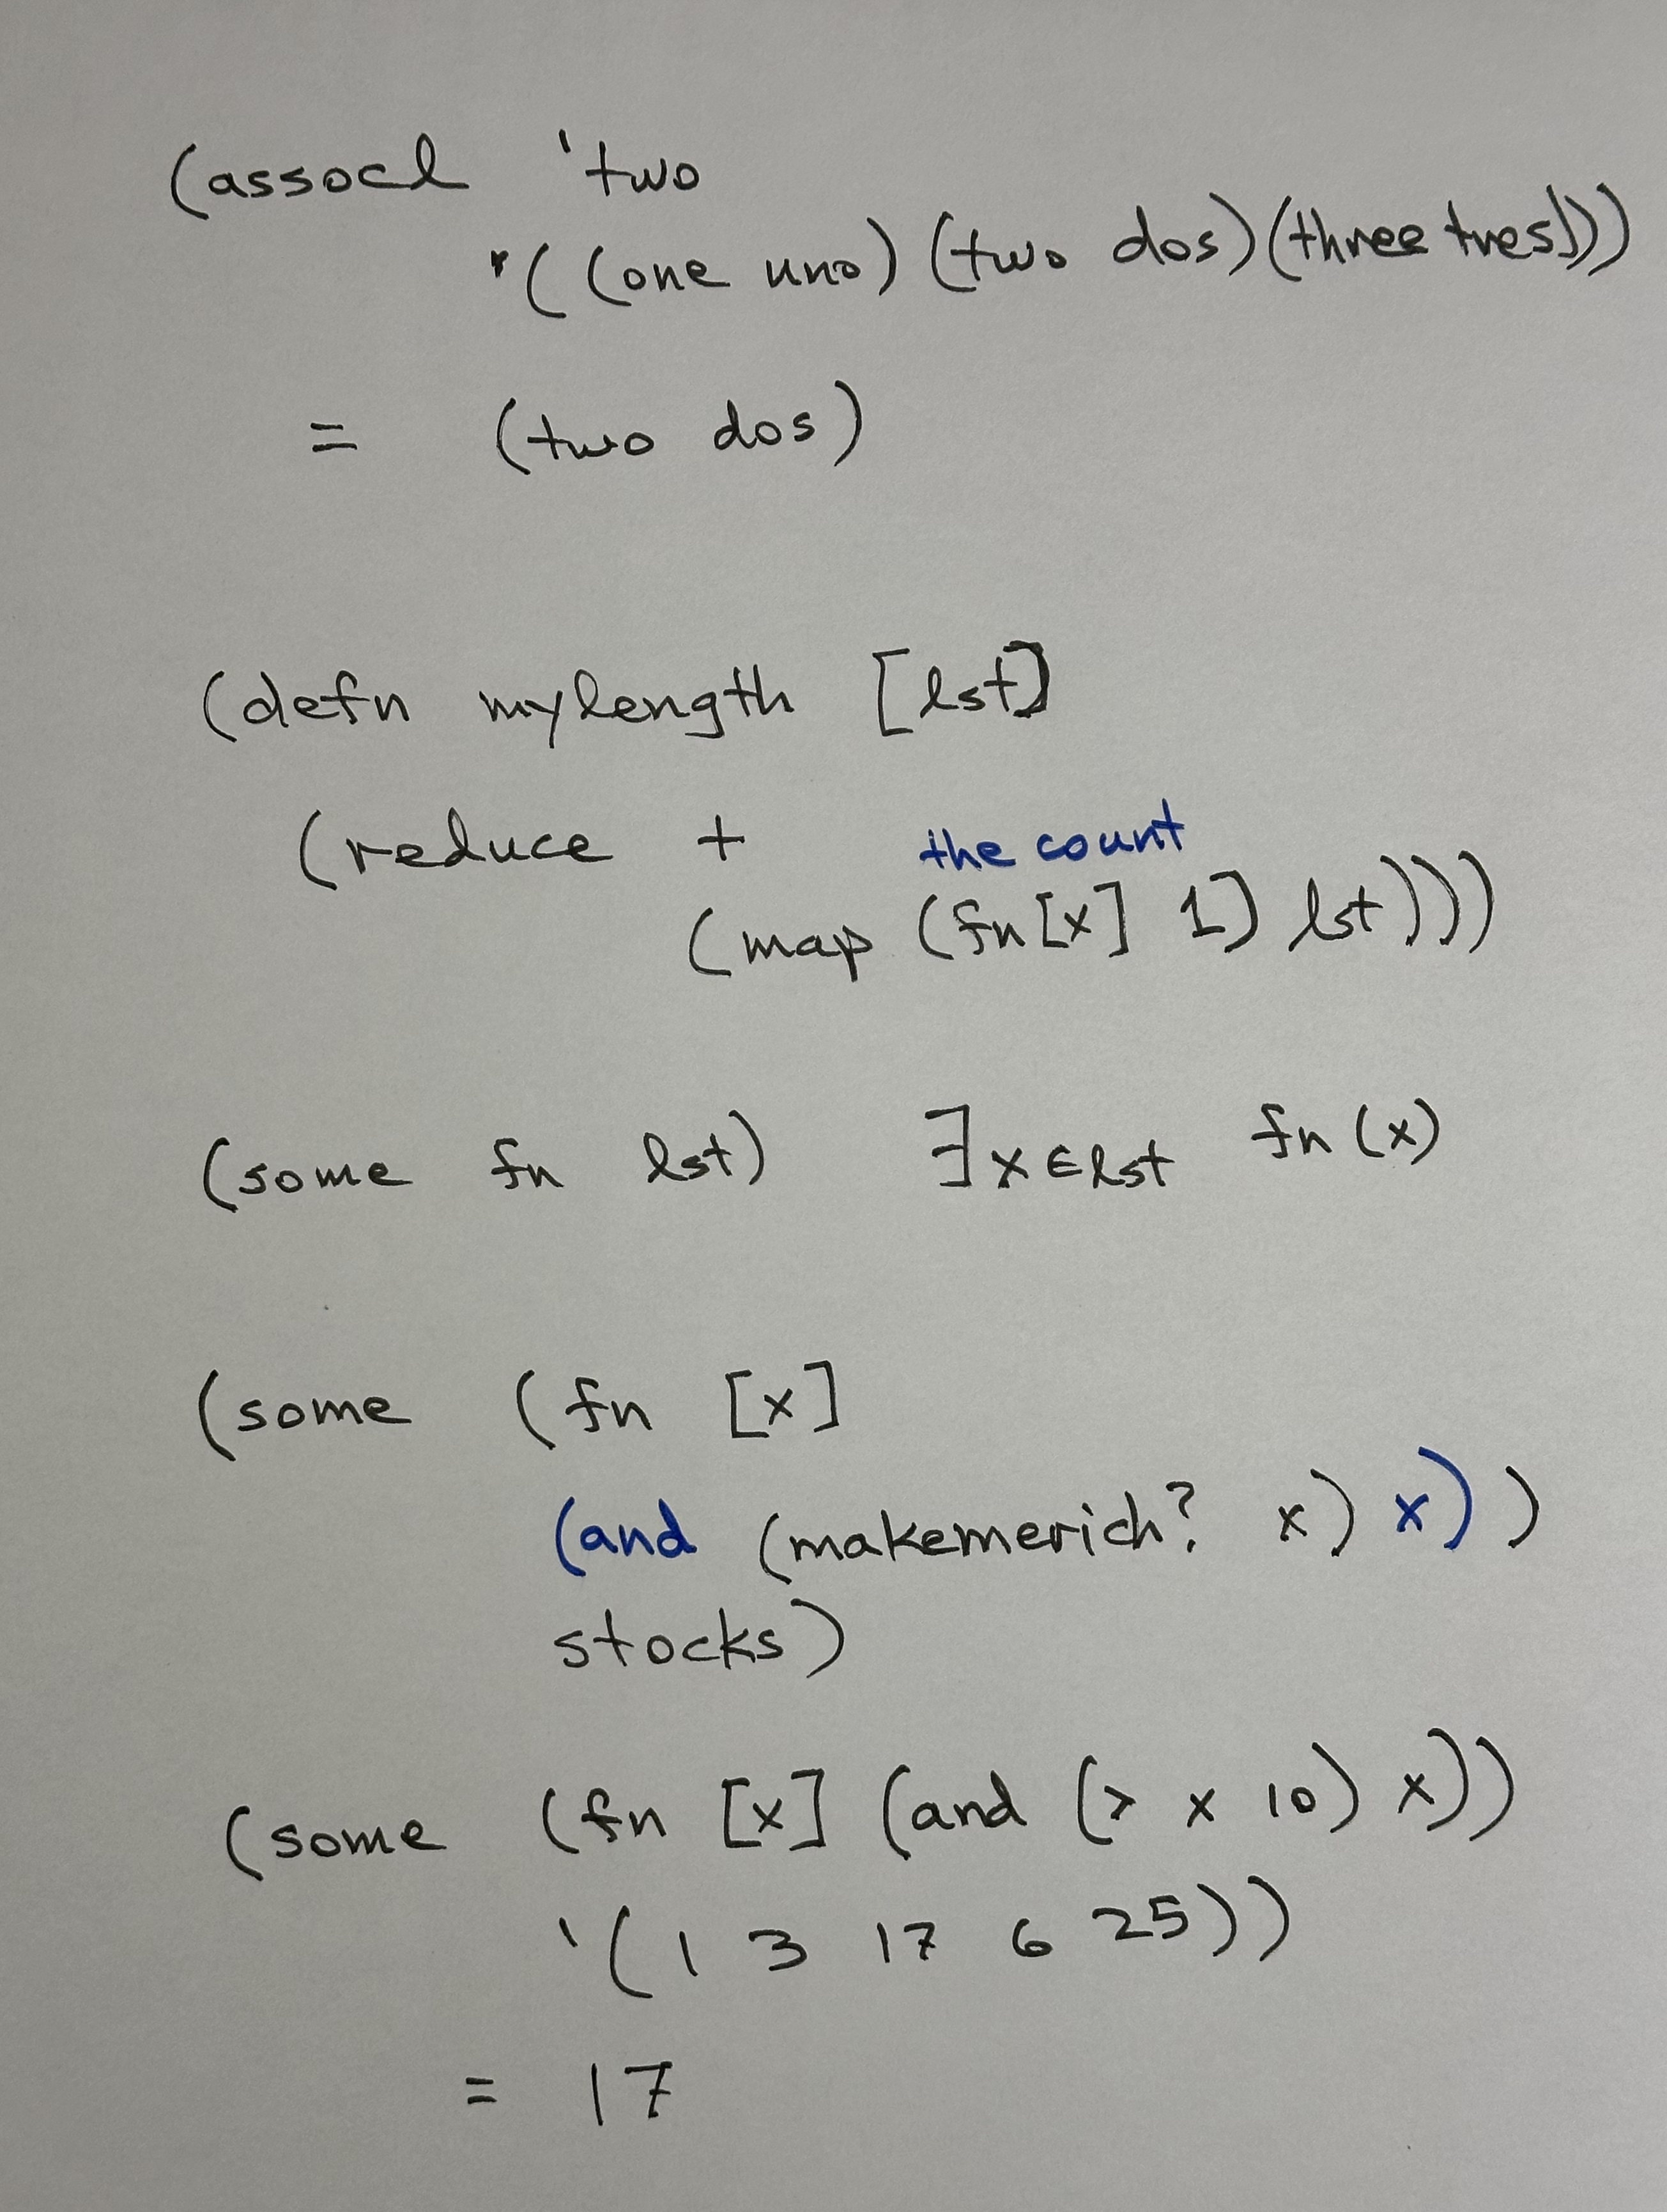 (assocl 'two
'((one uno)(two dos)(three tres)))
= (two dos)
(defn mylength [lst]
(reduce +
the count
(map (fn[x] 1) lst)))
(some fn lst) ∃x∈lst fn(x)
(some (fn [x]
(and (makemerich? x) x))
stocks)
(some (fn [x] (and (> x 10) x))
'(1 3 17 6 25))
= 17